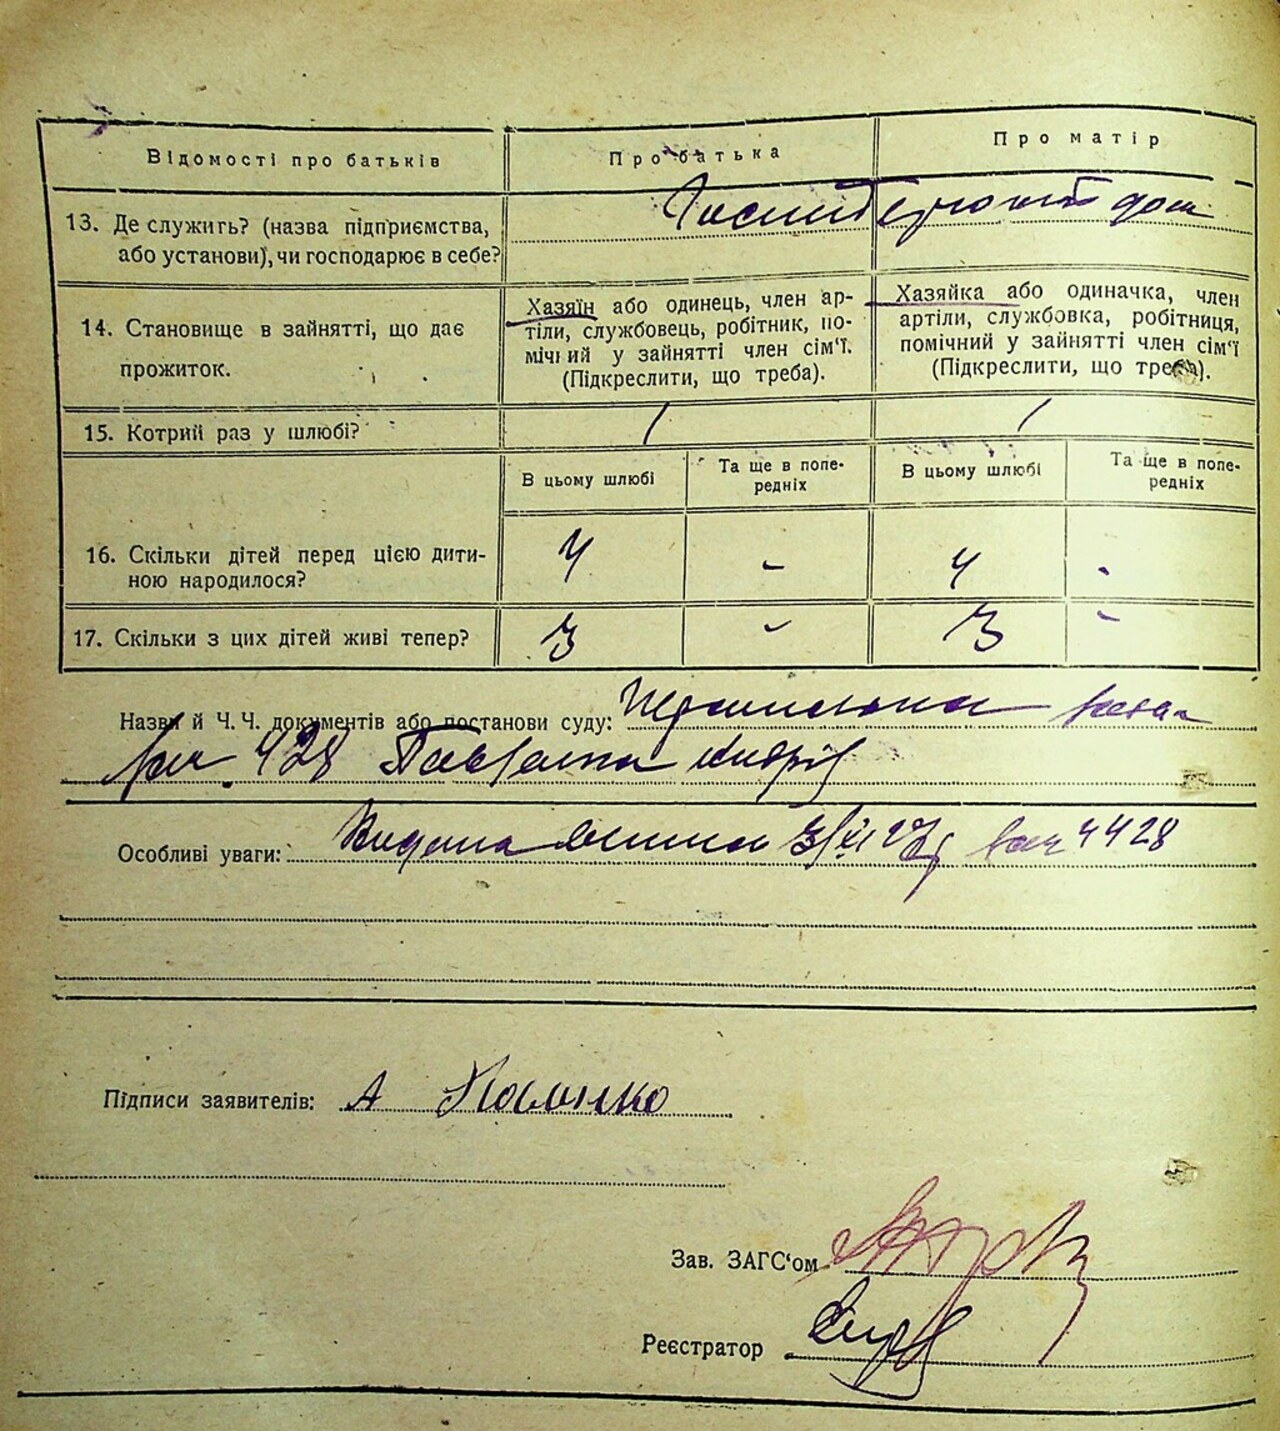 Відомості про батьків
Про батька
Про матір
13. Де служить? (назва підприємства,
або установи), чи господарює в себе?
14. Становище в зайнятті, що дає
прожиток.
Хазяїн або одинець, член ар-
тіли, службовець, робітник, по-
мічний у зайнятті член сім'ї.
(Підкреслити, що треба).
Хазяйка або одиначка, член
артіли, службовка, робітниця,
помічний у зайнятті член сім'ї
(Підкреслити, що треба).
15. Котрий раз у шлюбі?
1
1
В цьому шлюбі
Та ще в попе-
редніх
В цьому шлюбі
Та ще в попе-
редніх
16. Скільки дітей перед цією дити-
ною народилося?
4
-
4
-
17. Скільки з цих дітей живі тепер?
3
-
3
-
Назви й Ч.Ч. документів або постанови суду:
428
Особливі уваги: Видана 4428
Підписи заявителів: А
Зав. ЗАГС'ом
Реєстратор